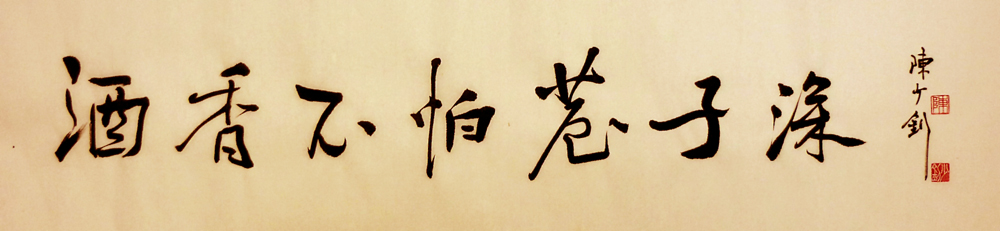 酒香不怕巷子深
陳少釗